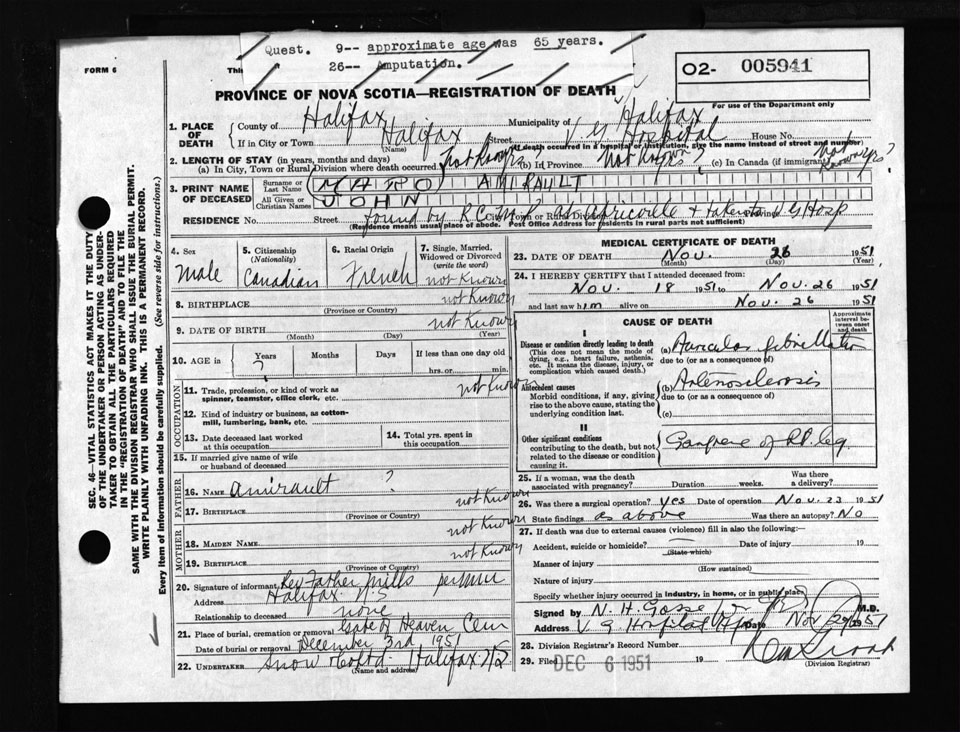 Quest. 9-- approximate age was 65 years.
26-- Amputation.
FORM 6
This
O2- 005941
PROVINCE OF NOVA SCOTIA—REGISTRATION OF DEATH
For use of the Department only
1. PLACE OF DEATH
County of Halifax Municipality of Halifax
If in City or Town Halifax Street V. G Hospital House No.
(Name) (If death occurred in a hospital or institution, give the name instead of street and number)
2. LENGTH OF STAY (in years, months and days)
(a) In City, Town or Rural Division where death occurred (b) In Province (c) In Canada (if immigrant)
3. PRINT NAME OF DECEASED
Surname or Last Name (MARO AMIRAULT
All Given or Christian Names JOHN
RESIDENCE No. Street found by R.C.M.P. at Africville & taken to V G Hosp
City, Town or Rural Division Province
(Residence means usual place of abode. Post Office Address for residents in rural parts not sufficient)
4. Sex
Male
5. Citizenship (Nationality)
Canadian
6. Racial Origin
French
7. Single, Married, Widowed or Divorced (write the word)
not Known
8. BIRTHPLACE not Known
(Province or Country)
9. DATE OF BIRTH not Known
(Month) (Day) (Year)
10. AGE in Years Months Days If less than one day old
? hrs. or min.
OCCUPATION
11. Trade, profession, or kind of work as spinner, teamster, office clerk, etc. not Known
12. Kind of industry or business, as cotton-mill, lumbering, bank, etc.
13. Date deceased last worked at this occupation
14. Total yrs. spent in this occupation
15. If married give name of wife or husband of deceased
FATHER
16. NAME Amirault ?
17. BIRTHPLACE not Known
(Province or Country)
MOTHER
18. MAIDEN NAME not Known
19. BIRTHPLACE not Known
(Province or Country)
20. Signature of informant Rev Father Mills
Address Halifax N.S
Relationship to deceased none
21. Place of burial, cremation or removal Gate of Heaven Cem
Date of burial or removal December 3rd 1951
22. UNDERTAKER Snow & Co Ltd. Halifax N S
(Name and address)
MEDICAL CERTIFICATE OF DEATH
23. DATE OF DEATH Nov. 26 1951
(Month) (Day)
24. I HEREBY CERTIFY that I attended deceased from
Nov. 18 1951 to Nov. 26 1951
and last saw him alive on Nov. 26 1951
CAUSE OF DEATH
Approximate interval between onset and death
I
Disease or condition directly leading to death
(This does not mean the mode of dying, e.g., heart failure, asthenia, etc. It means the disease, injury, or complication which caused death.)
(a) Auricular fibrillation
due to (or as a consequence of)
Antecedent causes
Morbid conditions, if any, giving rise to the above cause, stating the underlying condition last.
(b) Arteriosclerosis
due to (or as a consequence of)
(c)
II
Other significant conditions contributing to the death, but not related to the disease or condition causing it.
Gangrene of Rt. leg
25. If a woman, was the death associated with pregnancy? Duration weeks. Was there a delivery?
26. Was there a surgical operation? Yes Date of operation Nov. 23 1951
State findings as above Was there an autopsy? No
27. If death was due to external causes (violence) fill in also the following:—
Accident, suicide or homicide? Date of injury 19
(State which)
Manner of injury
(How sustained)
Nature of injury
Specify whether injury occurred in industry, in home, or in public place
Signed by N. H. Gosse M.D.
Address V. G Hospital Date Nov 29 1951
28. Division Registrar's Record Number
29. Filed DEC 6 1951 19
(Division Registrar)
SEC. 46—VITAL STATISTICS ACT MAKES IT THE DUTY
OF THE UNDERTAKER OR PERSON ACTING AS UNDER-
TAKER TO OBTAIN ALL THE PARTICULARS REQUIRED
IN THE "REGISTRATION OF DEATH" AND TO FILE THE
SAME WITH THE DIVISION REGISTRAR WHO SHALL ISSUE THE BURIAL PERMIT.
WRITE PLAINLY WITH UNFADING INK. THIS IS A PERMANENT RECORD.
Every item of information should be carefully supplied. (See reverse side for instructions.)